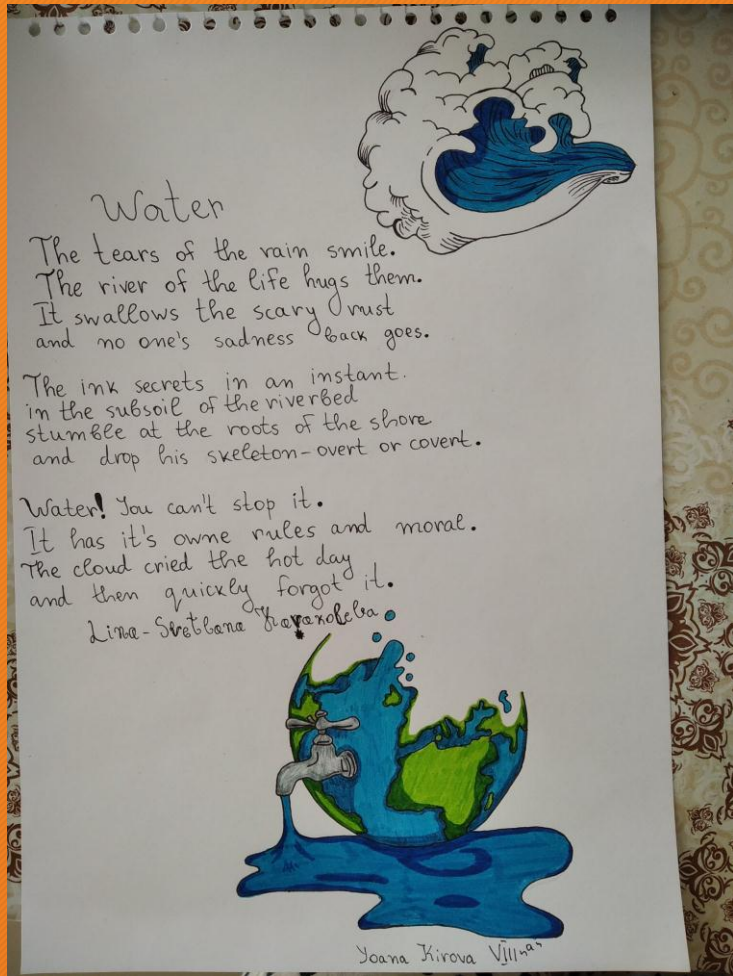 Water
The tears of the rain smile.
The river of the life hugs them.
It swallows the scary rust
and no one's sadness back goes.
The ink secrets in an instant.
in the subsoil of the riverbed
stumble at the roots of the shore
and drop his skeleton-overt or covert.
Water! You can't stop it.
It has it's owne rules and moral.
The cloud cried the hot day
and then quickly forgot it.
Lina-Svetlana
Yoana Kirova VIII "a"